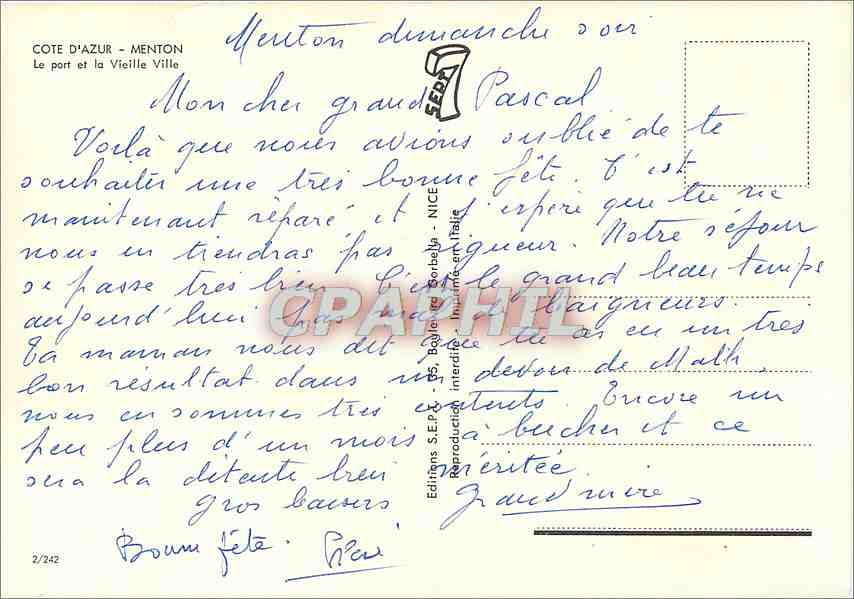 COTE D'AZUR - MENTON
Le port et la Vieille Ville
Menton dimanche soir
SEPT
Mon cher grand Pascal
Voilà que nous avions oublié de te
souhaiter une très bonne fête. C'est
maintenant réparé et j'espère que tu ne
nous en tiendras pas rigueur. Notre séjour
se passe très bien. C'est le grand beau temps
aujourd'hui pas mal de baigneurs.
Ta maman nous dit que tu as eu un très
bon résultat dans un devoir de Math,
nous en sommes très contents. Encore un
peu plus d'un mois à bucher et ce
sera la détente bien méritée
Gros baisers Grand'mère
Bonne fête.
2/242
Editions S.E.P.T. - 05, Boulevard Gorbella - NICE
Reproduction interdite - Imprimé en Italie
CPAPHIL